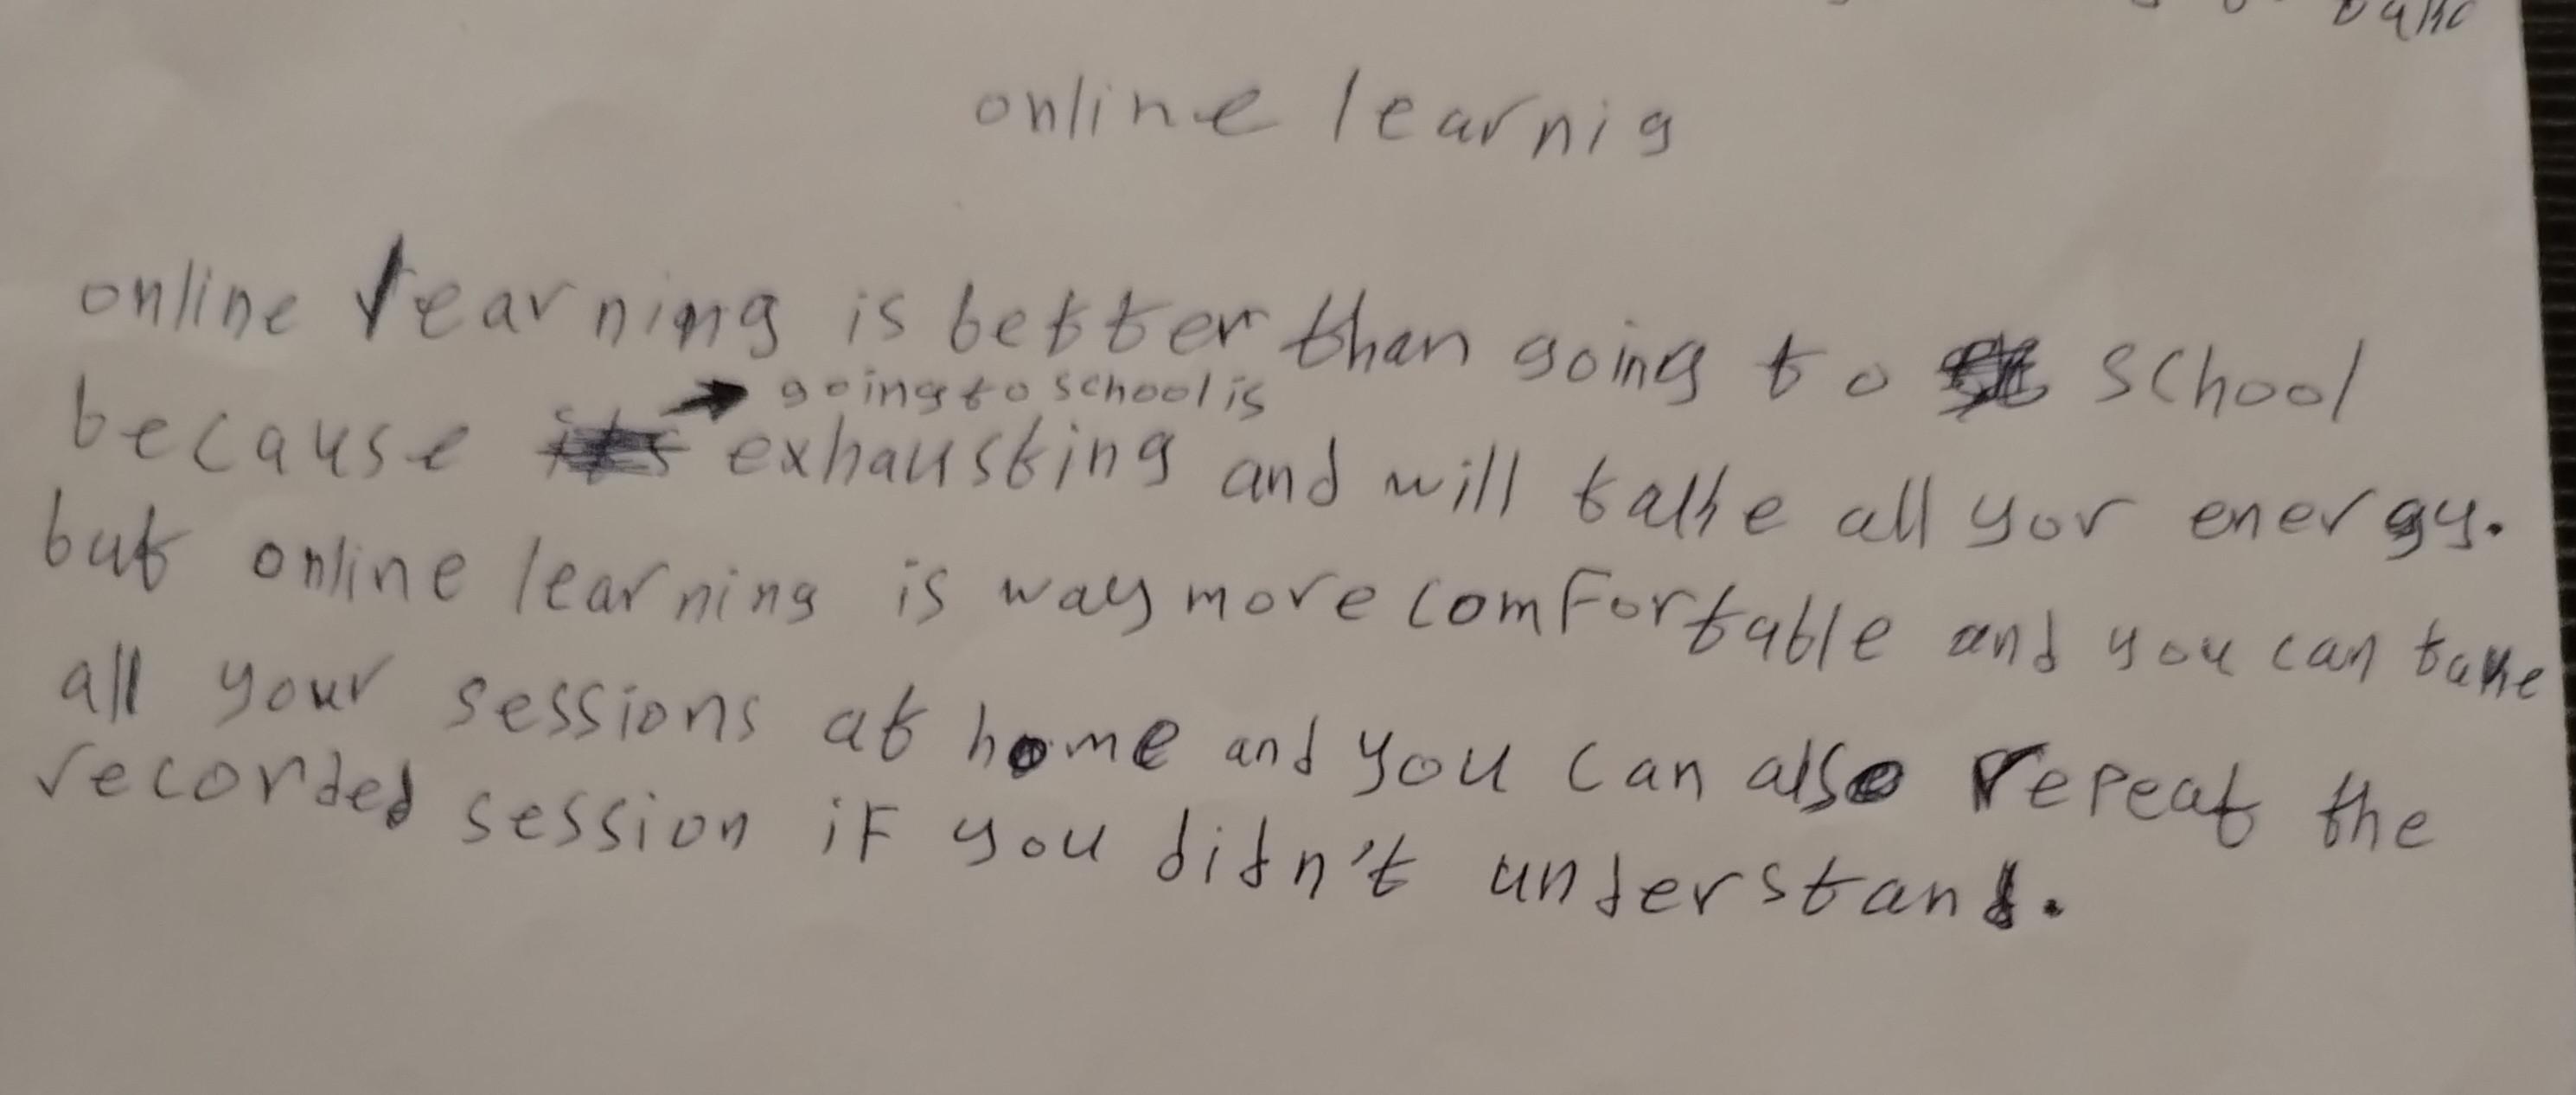 online learnig
online learning is better than going to school
because → going to school is exhausting and will take all yor energy.
but online learning is way more comfortable and you can take
all your sessions at home and you can also repeat the
recorded session if you didn't understand.